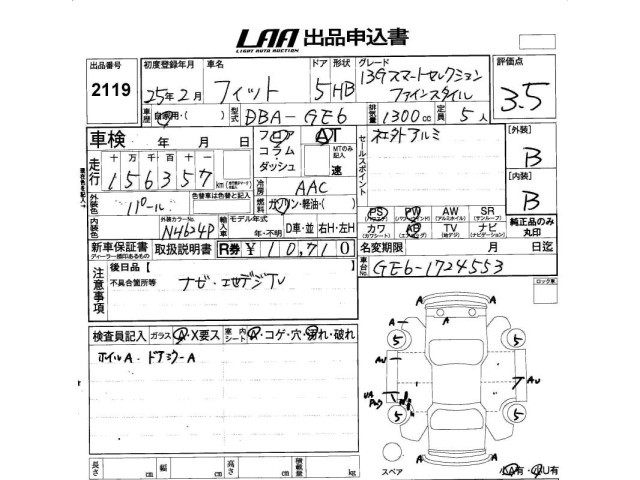 LAA 出品申込書
LIGHT AUTO AUCTION
出品番号 2119
初度登録年月 25年2月
車名 フィット
ドア 形状 5 HB
グレード 13Gスマートセレクション
ファインスタイル
評価点 3.5
車歴 自家用・( )
型式 DBA-GE6
排気量 1300cc
定員 5人
車検 年 月 日
フロア
コラム・
ダッシュ
AT
MTのみ記入
速
セールスポイント
社外アルミ
[外装] B
[内装] B
走行 十万 万 千 百 十 一
156357 km
冷房 AAC
外装色 パール
色替車は色替と記入
燃料 ガソリン・軽油・( )
内装色
外装カラーNo. N4624P
輸入車
モデル年式
年・不明
D車・並
右H・左H
PS PW AW SR
(パワーウインド) (アルミホイル) (サンルーフ)
カワ AB TV ナビ
(ワシート) (エアバッグ) (地デジ) (ナビゲーション)
純正品のみ
丸印
新車保証書 取扱説明書 R券 ¥10,710
ディーラー捺印あるもの
名変期限 月 日迄
車台No. GE6-1724553
注意事項
後日品 [
不具合箇所等 ナビ・
TV
ロック車
検査員記入 ガラス A・X要ス
室内シート A・コゲ・穴・汚れ・破れ
ホイルA・ドアミラーA
A A
5 5
AU AU
UA
5 5
A A
スペア
小A有・小U有
長さ cm 幅 cm 高さ cm 積載量 kg